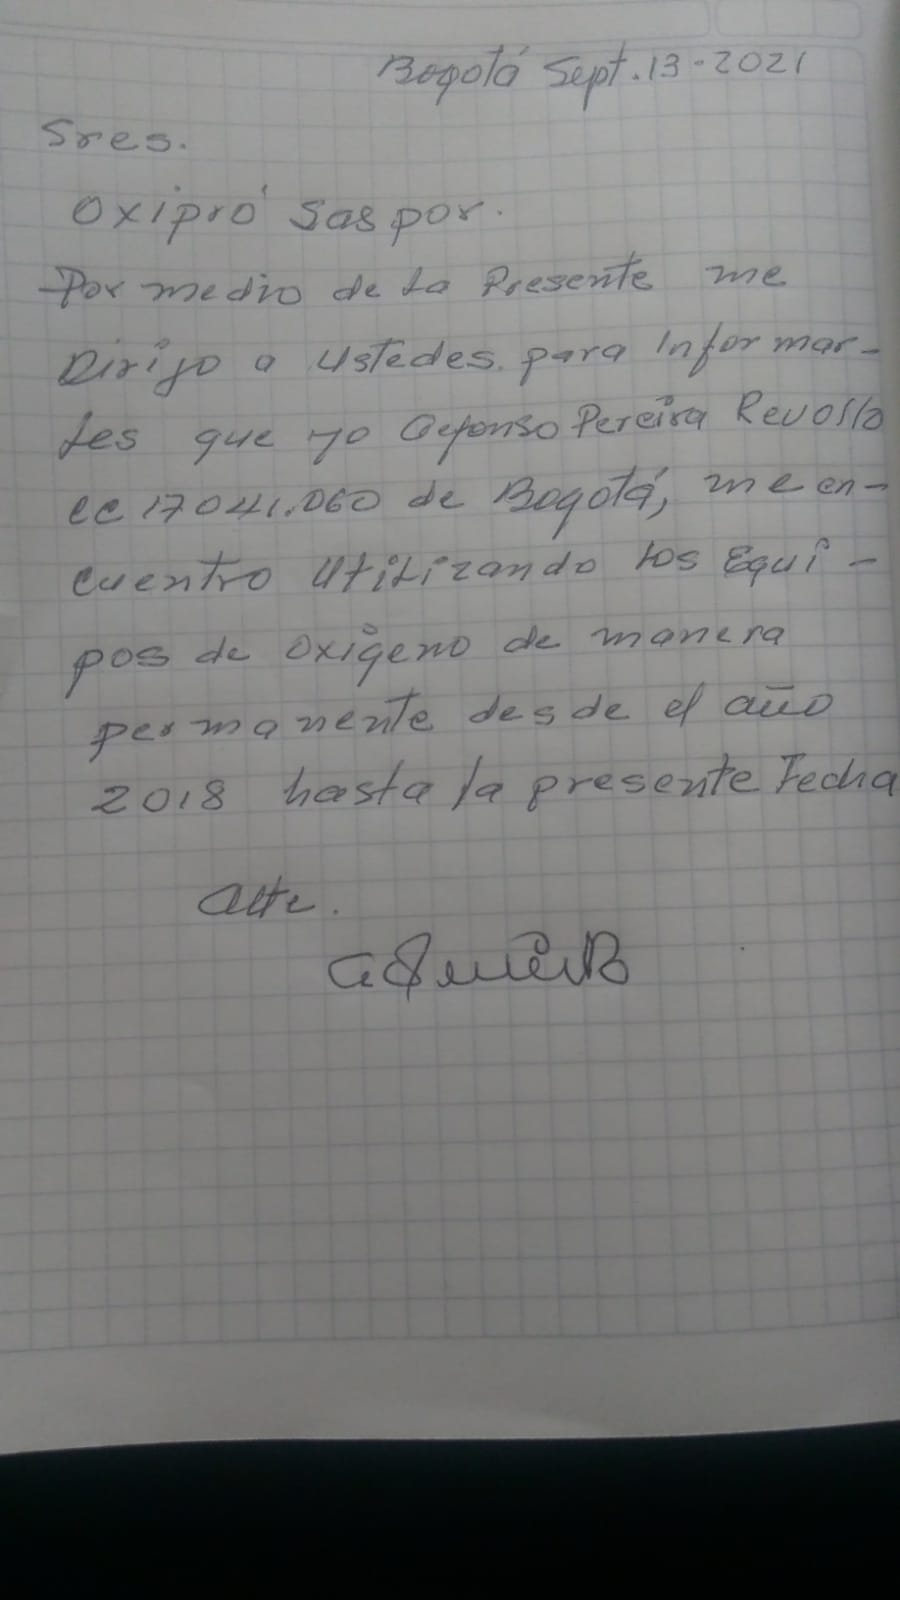 Bogotá Sept. 13-2021
Sres.
Oxipró Sas por.
Por medio de La Presente me
Dirijo a Ustedes. para Informar-
les que yo Alfonso Pereira Revollo
cc 17041.060 de Bogotá, me en-
cuentro Utilizando Los Equi-
pos de Oxigeno de manera
permanente desde el año
2018 hasta la presente Fecha
Atte.